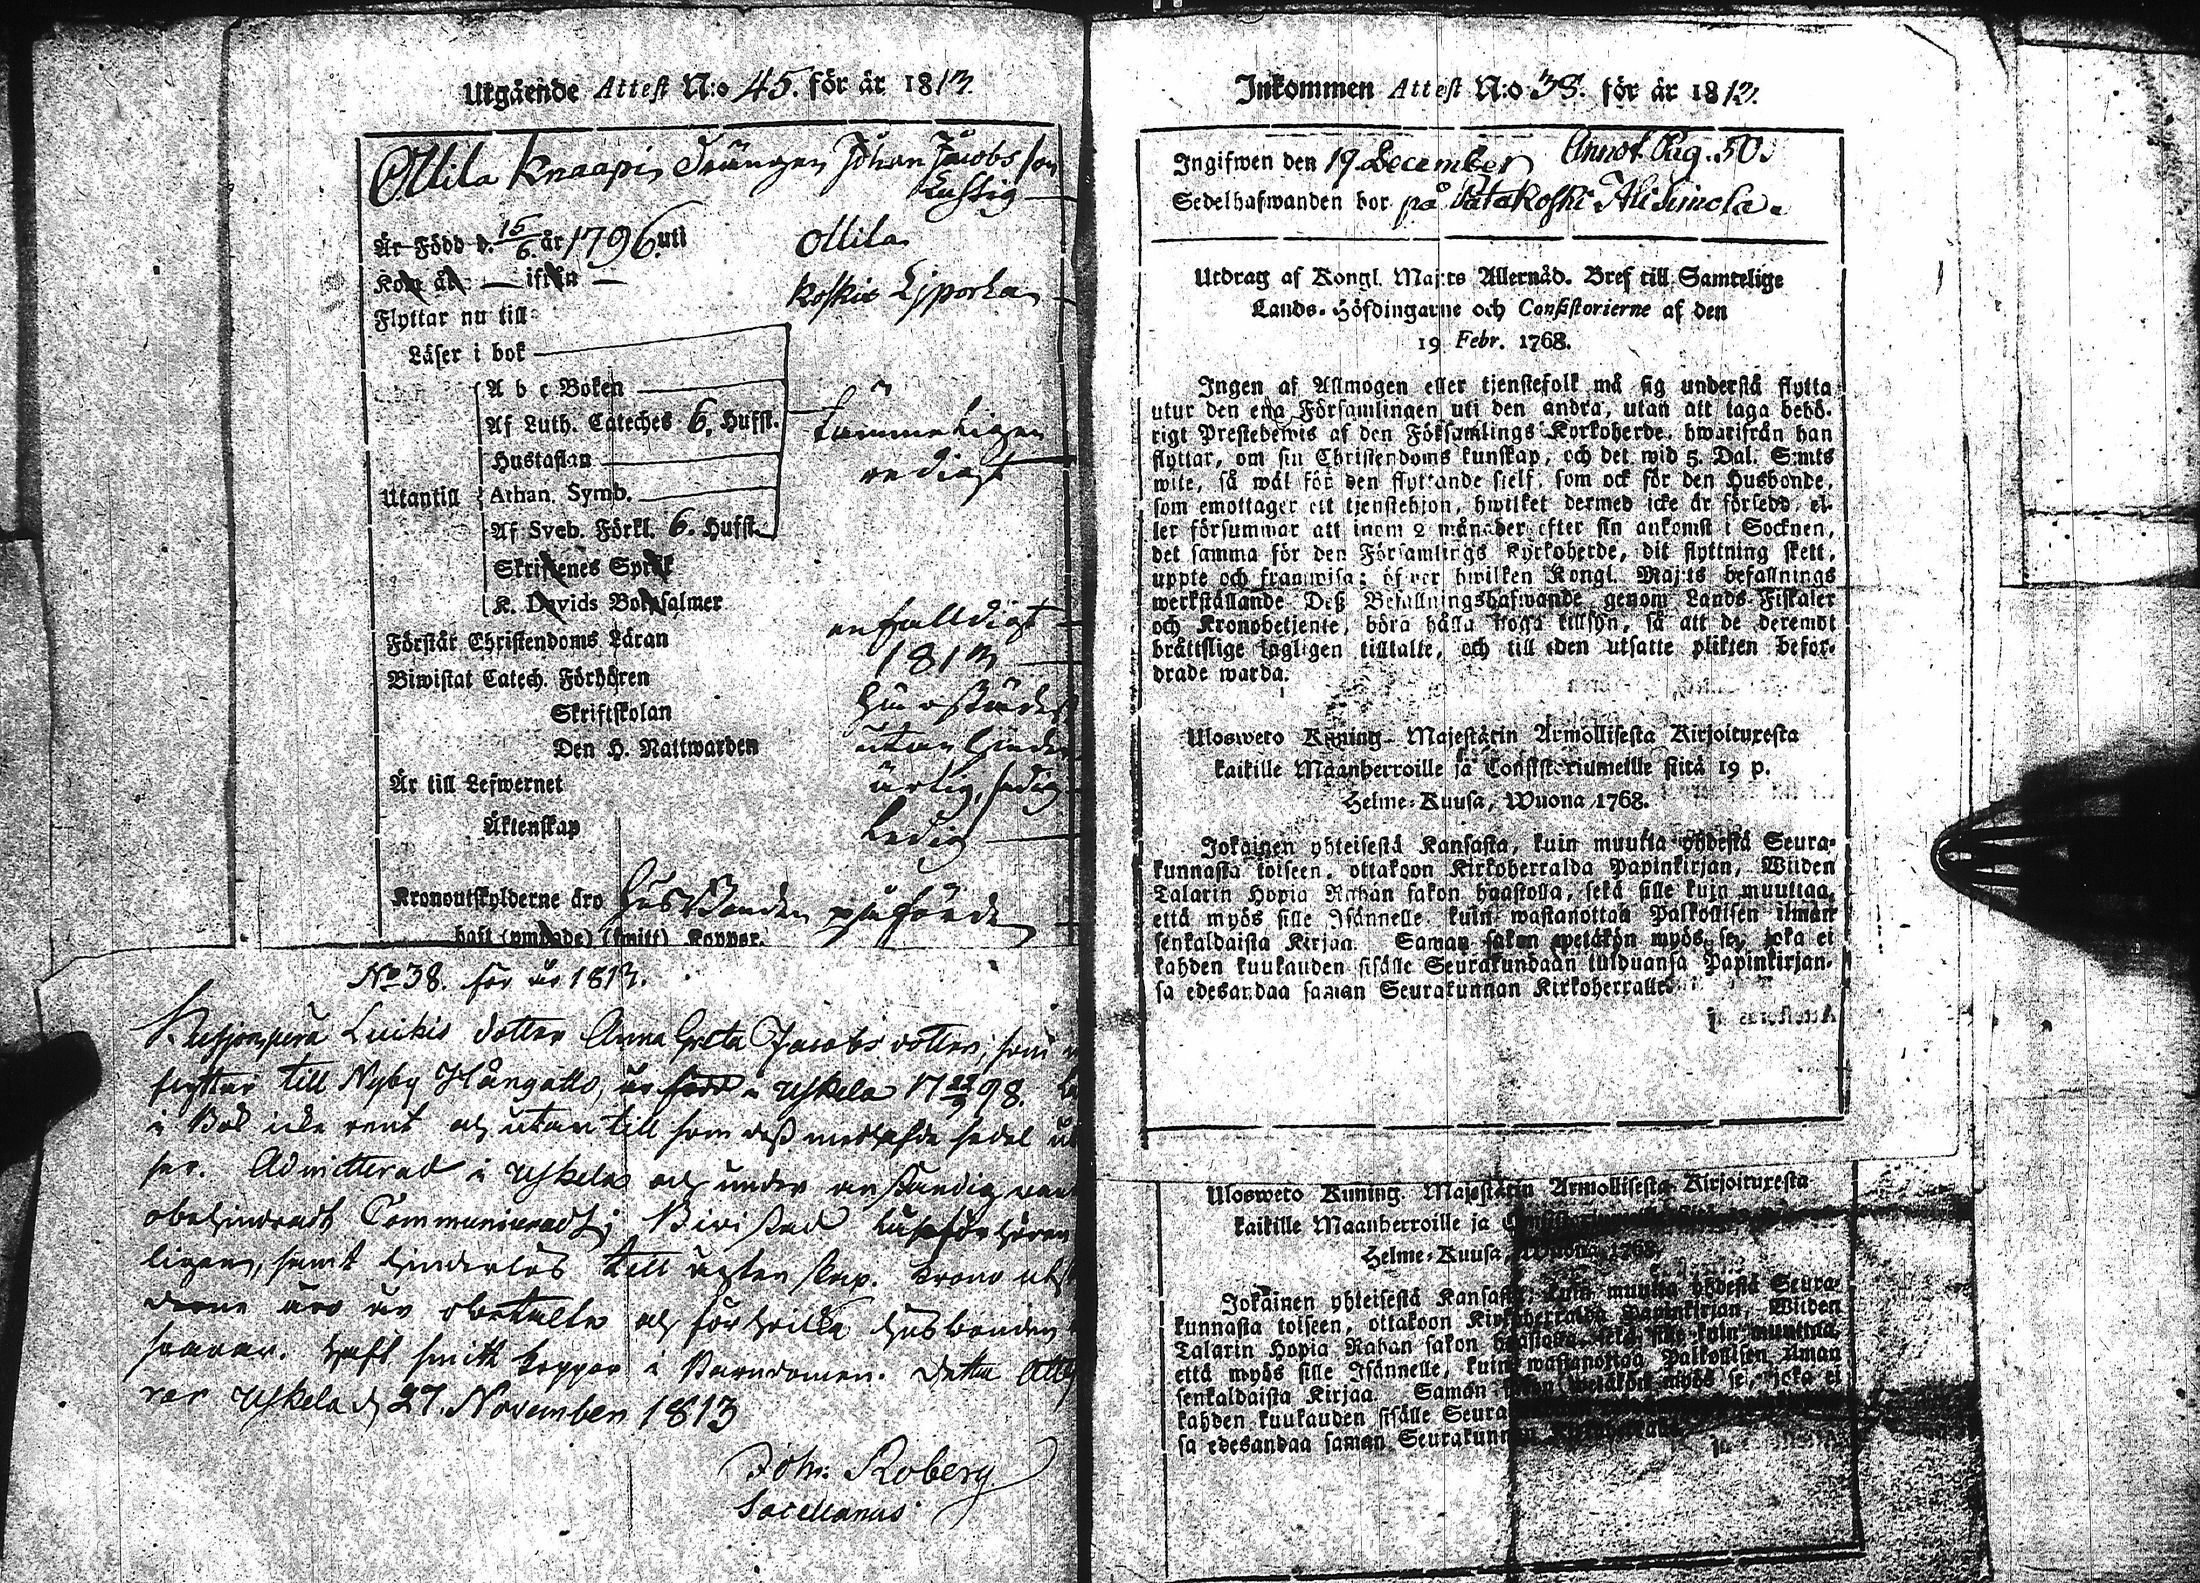 Utgående Attest N:o 45. för år 1813.
Ollila Knaapis Drängen Johan Jacobs son
Lustig
Är Född d. 15/6. år 1796. uti Ollila
Kom år — ifrån —
Flyttar nu till Koskis Liporla
Läser i bok
A b c Boken
Af Luth. Cateches 6. Hufst.
Hustaflan
Utantill
Athan. Symb.
Af Sveb. Förkl. 6. Hufst.
Skriftenes Språk
K. Davids Botpsalmer
temmeligen
redigt
Förstår Christendoms Läran enfalldigt
Biwistat Catech. Förhören 1813
Skriftskolan
Den H. Nattwarden utan hinder
Är till Lefwernet ärlig, sedig
Äktenskap ledig
Kronoutskylderne äro Husbonden påförde
haft (ympade) (smitt) Koppor.
No 38. för år 1813.
Luikis dotter Anna Greta Jacobs dotter, som
flyttar till Nyby Hångatto, är född i Uskela 17 98.
i Bok icke rent och utan till som dess medhafde sedel
ser. Admitterad i Uskela och under anständig
obehindradt Communiceradt; Bivistad Läseförhören
ligen, samt hinderlös till ägtenskap. Krono
derne äro obetalte och för hvilka husbonden
svarar. haft smitt koppor i Barndomen. Detta
rar Uskela d 27. November 1813
Joh: Roberg
Sacellanus
Inkommen Attest N:o 38. för år 1813.
Ingifwen den 19 December Annot. Pag. 50.
Sedelhafwanden bor på Patakoski Ali Simola.
Utdrag af Kongl. Maj:ts Allernåd. Bref till Samtelige
Lands-Höfdingarne och Consistorierne af den
19 Febr. 1768.
Ingen af Allmogen eller tjenstefolk må sig understå flytta
utur den ena Församlingen uti den andra, utan att taga behö-
rigt Prestebewis af den Församlings Kyrkoherde, hwarifrån han
flyttar, om sin Christendoms kunskap, och det wid 5. Dal. S:mts
wite, så wäl för den flyttande sielf, som ock för den Husbonde,
som emottager ett tjenstehjon, hwilket dermed icke är försedd, el-
ler försummar att inom 2 månader efter sin ankomst i Socknen,
det samma för den Församlings Kyrkoherde, dit flyttning skett,
uppte och framwisa; öfwer hwilken Kongl. Maj:ts befallnings
werkställande Deß Befallningshafwande genom Lands Fiskaler
och Kronobetjente, böra hålla noga tillsyn, så att de deremot
bråttslige lagligen tilltalte, och till den utsatte plikten befor-
drade warda.
Ulosweto Kuning. Majestätin Armollisesta Kirjoituxesta
kaikille Maanherroille ja Consistoriumeille siitä 19 p.
Helme-Kuusa, Wuona 1768.
Jokainen yhteisestä Kansasta, kuin muutta yhdestä Seura-
kunnasta toiseen, ottakoon Kirkoherralda Papinkirjan, Wiiden
Talarin Hopia Rahan sakon haastolla, sekä sille kuin muuttaa,
että myös sille Isännelle, kuin wastanottaa Palkollisen ilman
senkaldaista Kirjaa. Saman sakon wetäkön myös se, joka ei
kahden kuukauden sisälle Seurakundaan tulduansa Papinkirjan-
sa edesandaa saman Seurakunnan Kirkoherralle.
Ulosweto Kuning. Majestätin Armollisesta Kirjoituxesta
kaikille Maanherroille ja
Helme-Kuusa, Wuona 1768.
Jokainen yhteisestä Kansasta, kuin muutta yhdestä Seura-
kunnasta toiseen, ottakoon Kirkoherralda Papinkirjan, Wiiden
Talarin Hopia Rahan sakon haastolla, sekä sille kuin muuttaa,
että myös sille Isännelle, kuin wastanottaa Palkollisen ilman
senkaldaista Kirjaa. Saman sakon wetäkön myös se, joka ei
kahden kuukauden sisälle Seura
sa edesandaa saman Seurakunnan Kirkoherralle.